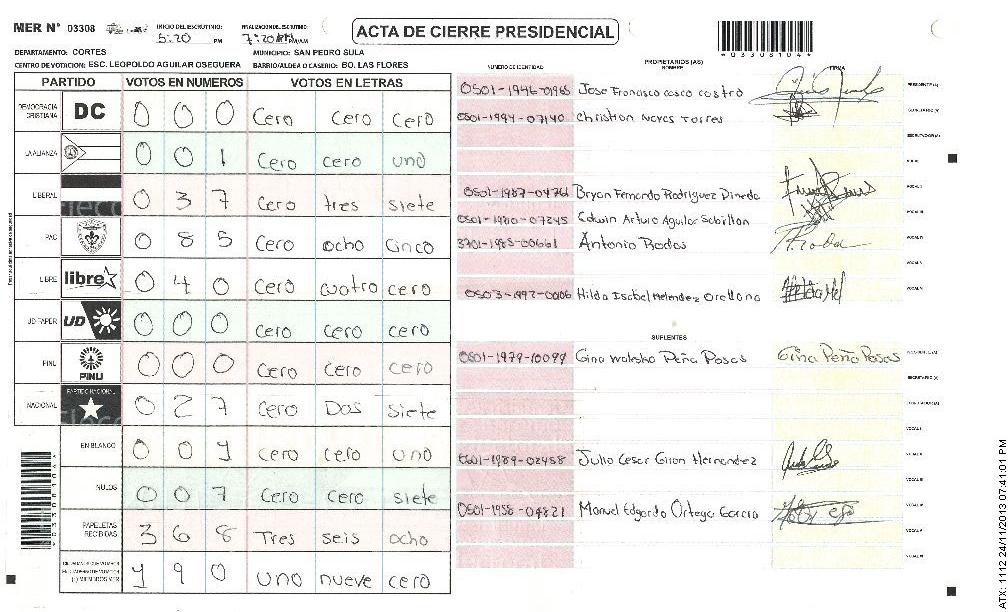 MER N° 03308 INICIO DEL ESCRUTINIO: 5:20 PM FINALIZACION DEL ESCRUTINIO: 7:20 PM/AM
ACTA DE CIERRE PRESIDENCIAL
*03308104*
DEPARTAMENTO: CORTES MUNICIPIO: SAN PEDRO SULA
CENTRO DE VOTACION: ESC. LEOPOLDO AGUILAR OSEGUERA BARRIO/ALDEA O CASERIO: BO. LAS FLORES
PARTIDO VOTOS EN NUMEROS VOTOS EN LETRAS
DEMOCRACIA CRISTIANA DC 0 0 0 Cero Cero Cero
LA ALIANZA 0 0 1 Cero cero uno
LIBERAL 0 3 7 Cero tres siete
PAC 0 8 5 Cero ocho Cinco
LIBRE libre 0 4 0 Cero cuatro cero
UD FAPER UD 0 0 0 Cero Cero cero
PINU PINU 0 0 0 Cero Cero cero
NACIONAL PARTIDO NACIONAL 0 2 7 Cero Dos siete
EN BLANCO 0 0 1 cero cero uno
NULOS 0 0 7 Cero cero siete
PAPELETAS RECIBIDAS 3 6 8 Tres seis ocho
1 9 0 uno nueve cero
NUMERO DE IDENTIDAD PROPIETARIOS (AS) NOMBRE FIRMA
0501-1946-01965 Jose Francisco casco castro PRESIDENTE (A)
0501-1994-07140 Christian Neves Torres SECRETARIO (A)
ESCRUTADOR (A)
VOCAL I
0501-1987-04761 Bryan Fernando Rodriguez Pineda VOCAL II
0501-1980-07245 Edwin Arturo Aguilar Sabillon VOCAL III
3701-1985-00661 Antonio Rodas VOCAL IV
VOCAL V
0503-1992-0006 Hilda Isabel Melendez Orellana VOCAL VI
SUPLENTES
0501-1979-10099 Gina Waleska Peña Posas Gina Peña Posas PRESIDENTE (A)
SECRETARIO (A)
ESCRUTADOR (A)
VOCAL I
0501-1989-02458 Julio Cesar Giron Hernandez VOCAL II
VOCAL III
0501-1958-04821 Manuel Edgardo Ortega Garcia VOCAL IV
VOCAL V
VOCAL VI
ATX: 1112 24/11/2013 07:41:01 PM